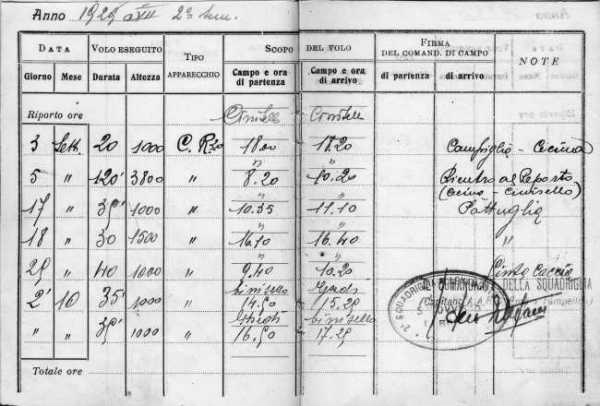 Anno 1929 a VII 2° Sem.
DATA VOLO ESEGUITO TIPO APPARECCHIO SCOPO DEL VOLO FIRMA DEL COMAND. DI CAMPO NOTE
Giorno Mese Durata Altezza Campo e ora di partenza Campo e ora di arrivo di partenza di arrivo
Riporto ore Cinisello Cinisello
3 Sett. 20 1000 C. R20 18.00 18.20 Campiglio - Cecina
5 " 120' 3800 " " 8.20 " 10.20 Rientro al Reparto
(Cecina - Cinisello)
17 " 35' 1000 " " 10.35 " 11.10 Pattuglia
18 " 30 1500 " " 16.10 " 16.40 "
29 " 40 1000 " " 9.40 " 10.20 Caccia
2' 10 35' 1000 " Cinisello 14.50 15.25
" " 35' 1000 " 16.50 Cinisello 17.25
COMANDANTE DELLA SQUADRIGLIA
SQUADRIGLIA
Totale ore